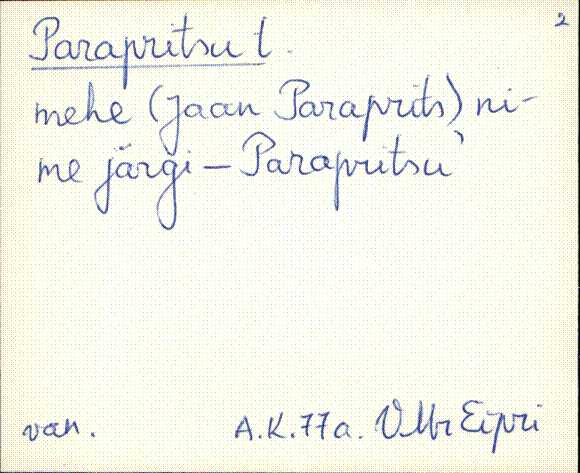 2
Parapritsu t.
mehe (Jaan Paraprits) ni-
me järgi – Parapritsu
van. A.K. 77 a. V Mr Eipri